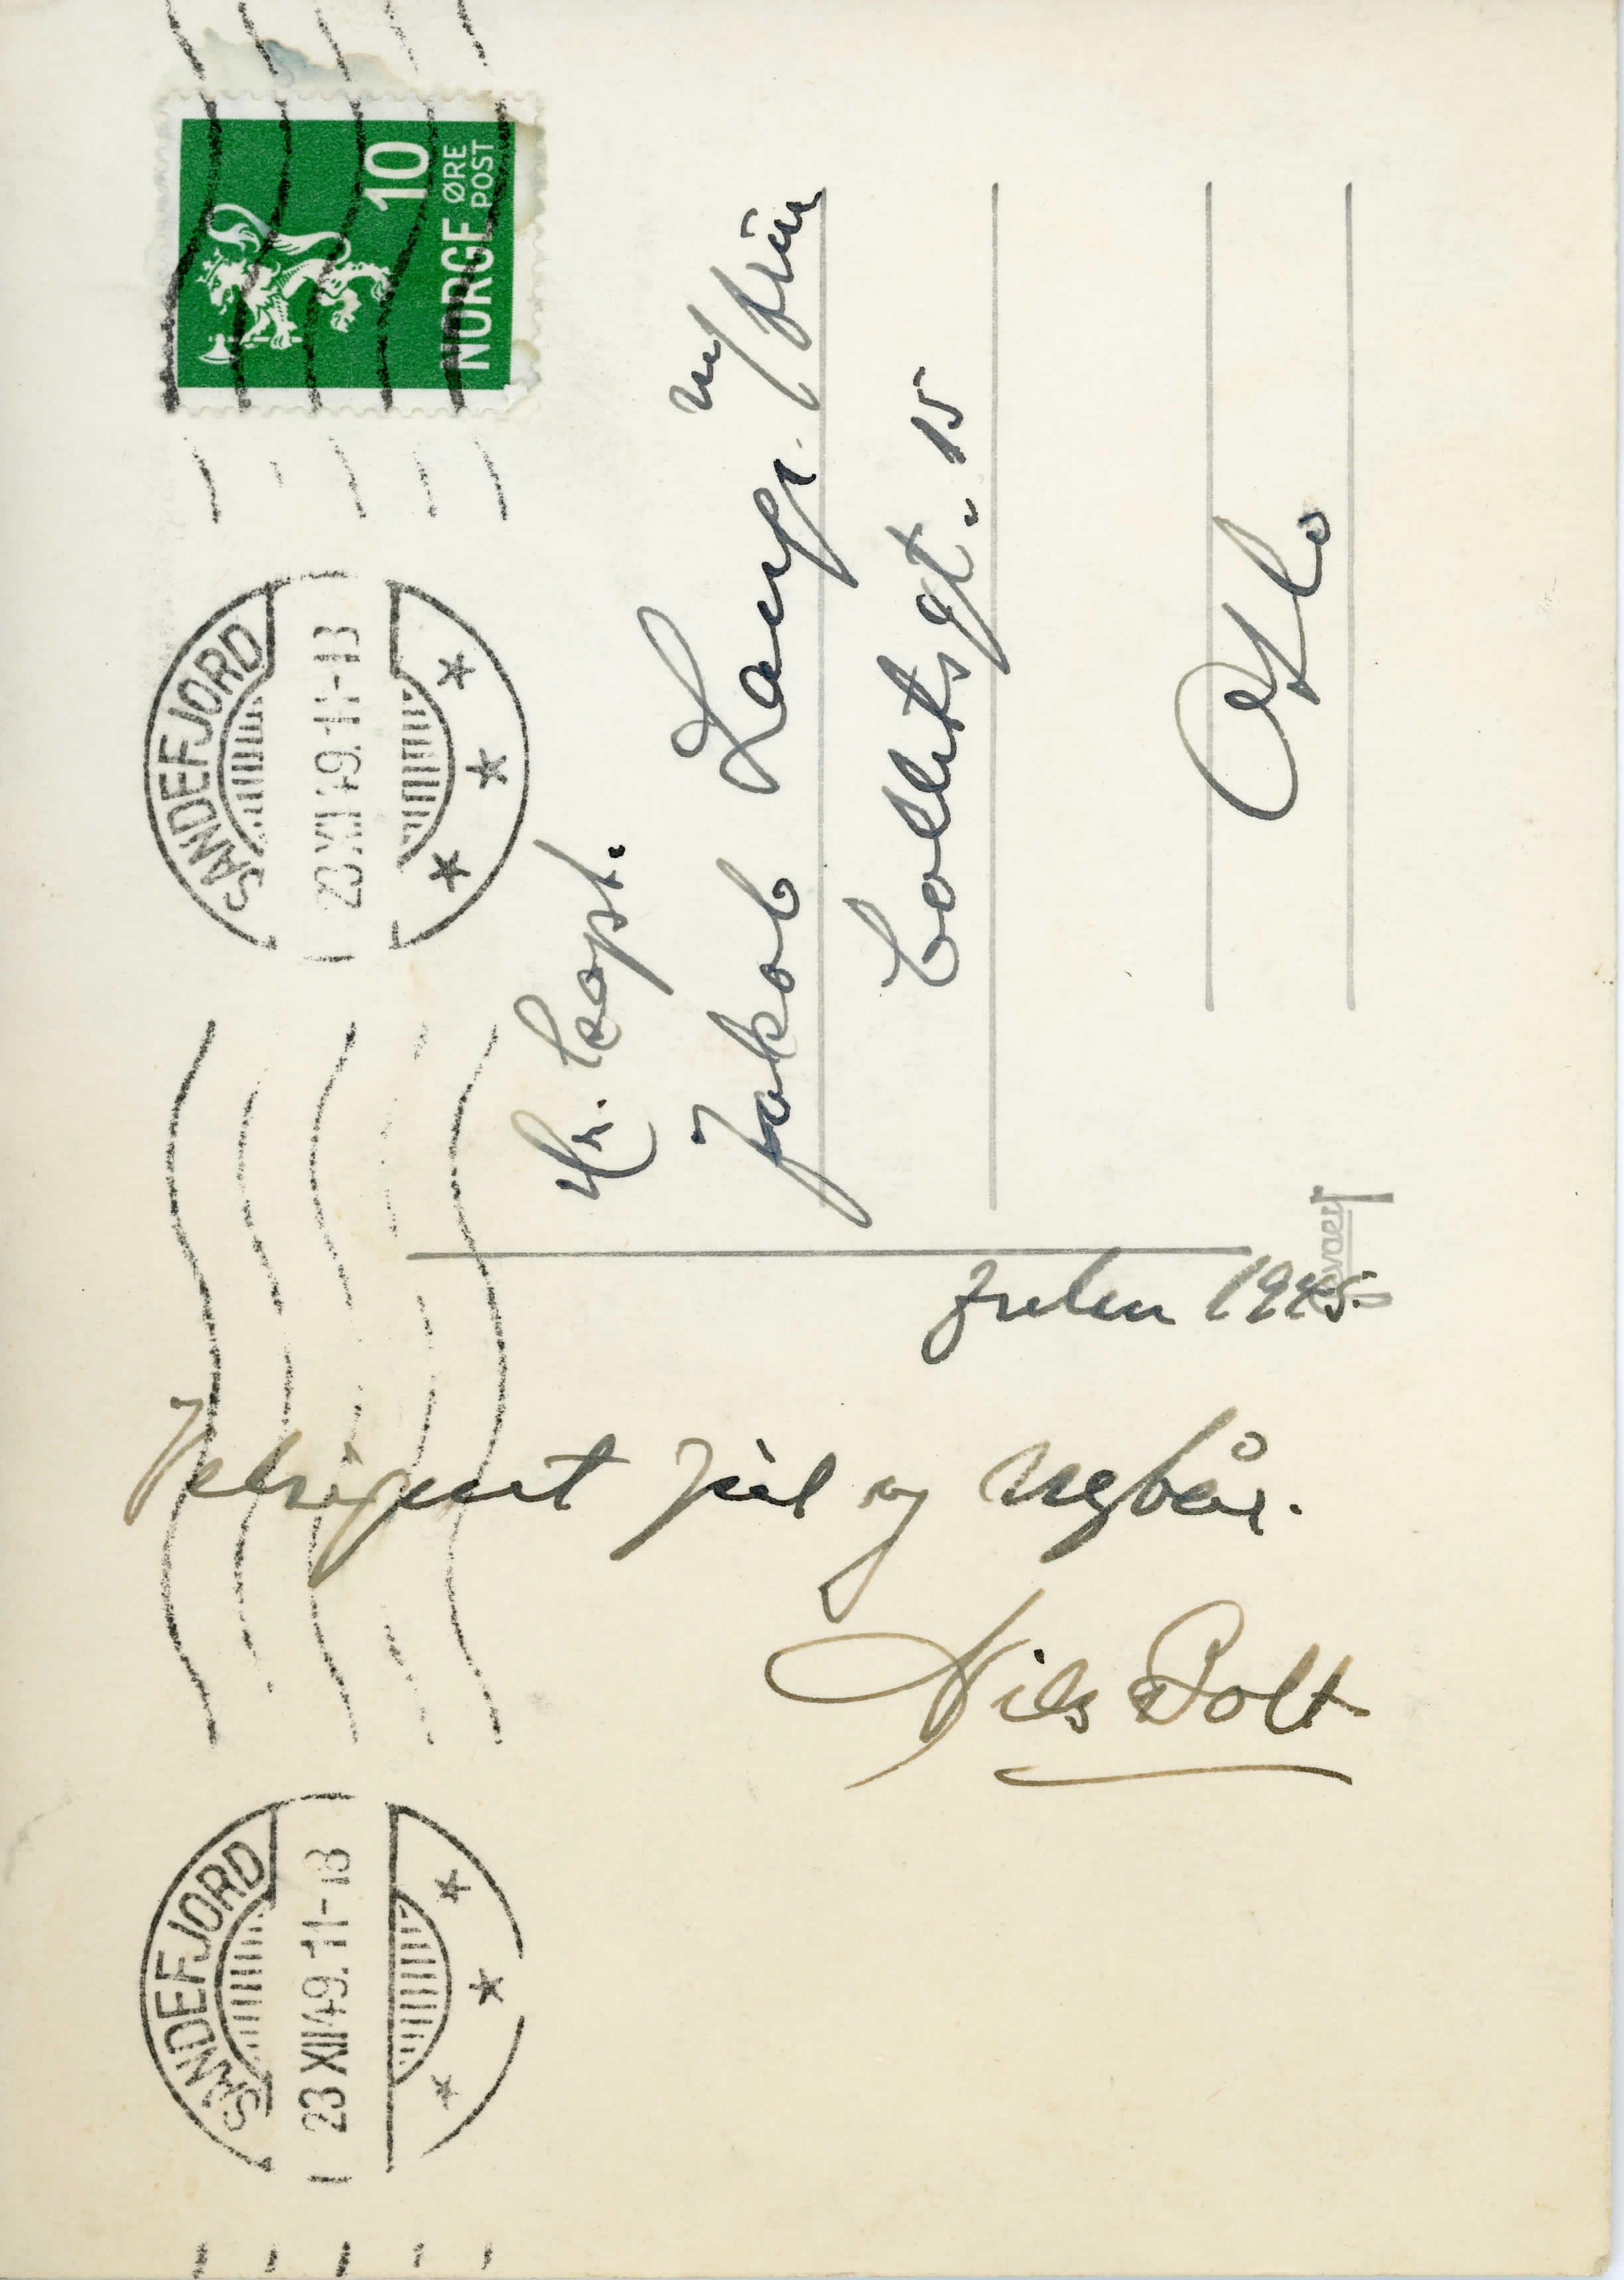 10
ØRE
POST
NORGE
SANDEFJORD
23 XII 49. 11-13
Hr. Capt.
Jakob Lange. m/ frue
Colletsgt. 15
Oslo
Julen 1945
Velsignet jul og nyår.
Nils Bolt
SANDEFJORD
23 XII 49. 11-13